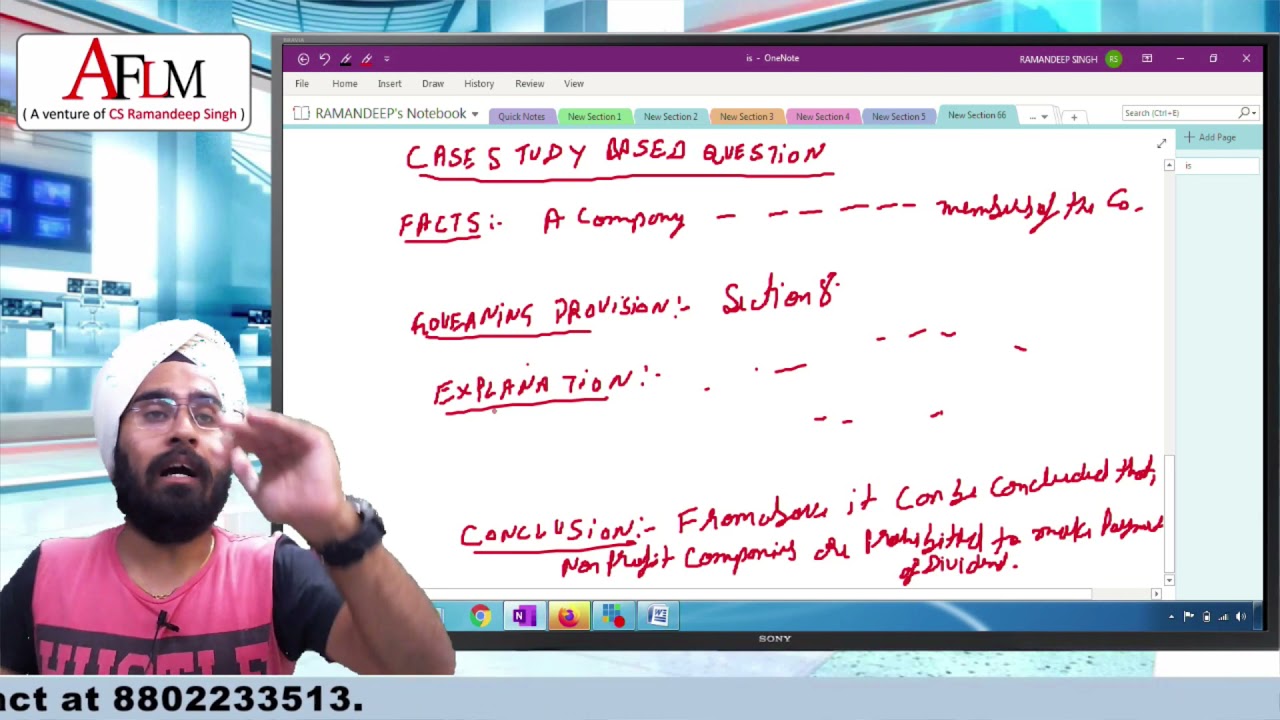 AFLM
( A venture of CS Ramandeep Singh )
BRAVIA
is - OneNote
RAMANDEEP SINGH RS
File Home Insert Draw History Review View
RAMANDEEP's Notebook
Quick Notes New Section 1 New Section 2 New Section 3 New Section 4 New Section 5 New Section 66 ...
Search (Ctrl+E)
Add Page
is
CASE STUDY BASED QUESTION
FACTS:- A Company - - - - - - members of the Co.
GOVERNING PROVISION:- Section 8.
EXPLANATION:-
CONCLUSION:- From above it can be concluded that,
Non Profit Companies are Prohibited to make Payment
of Dividend.
SONY
HUSTLE
act at 8802233513.